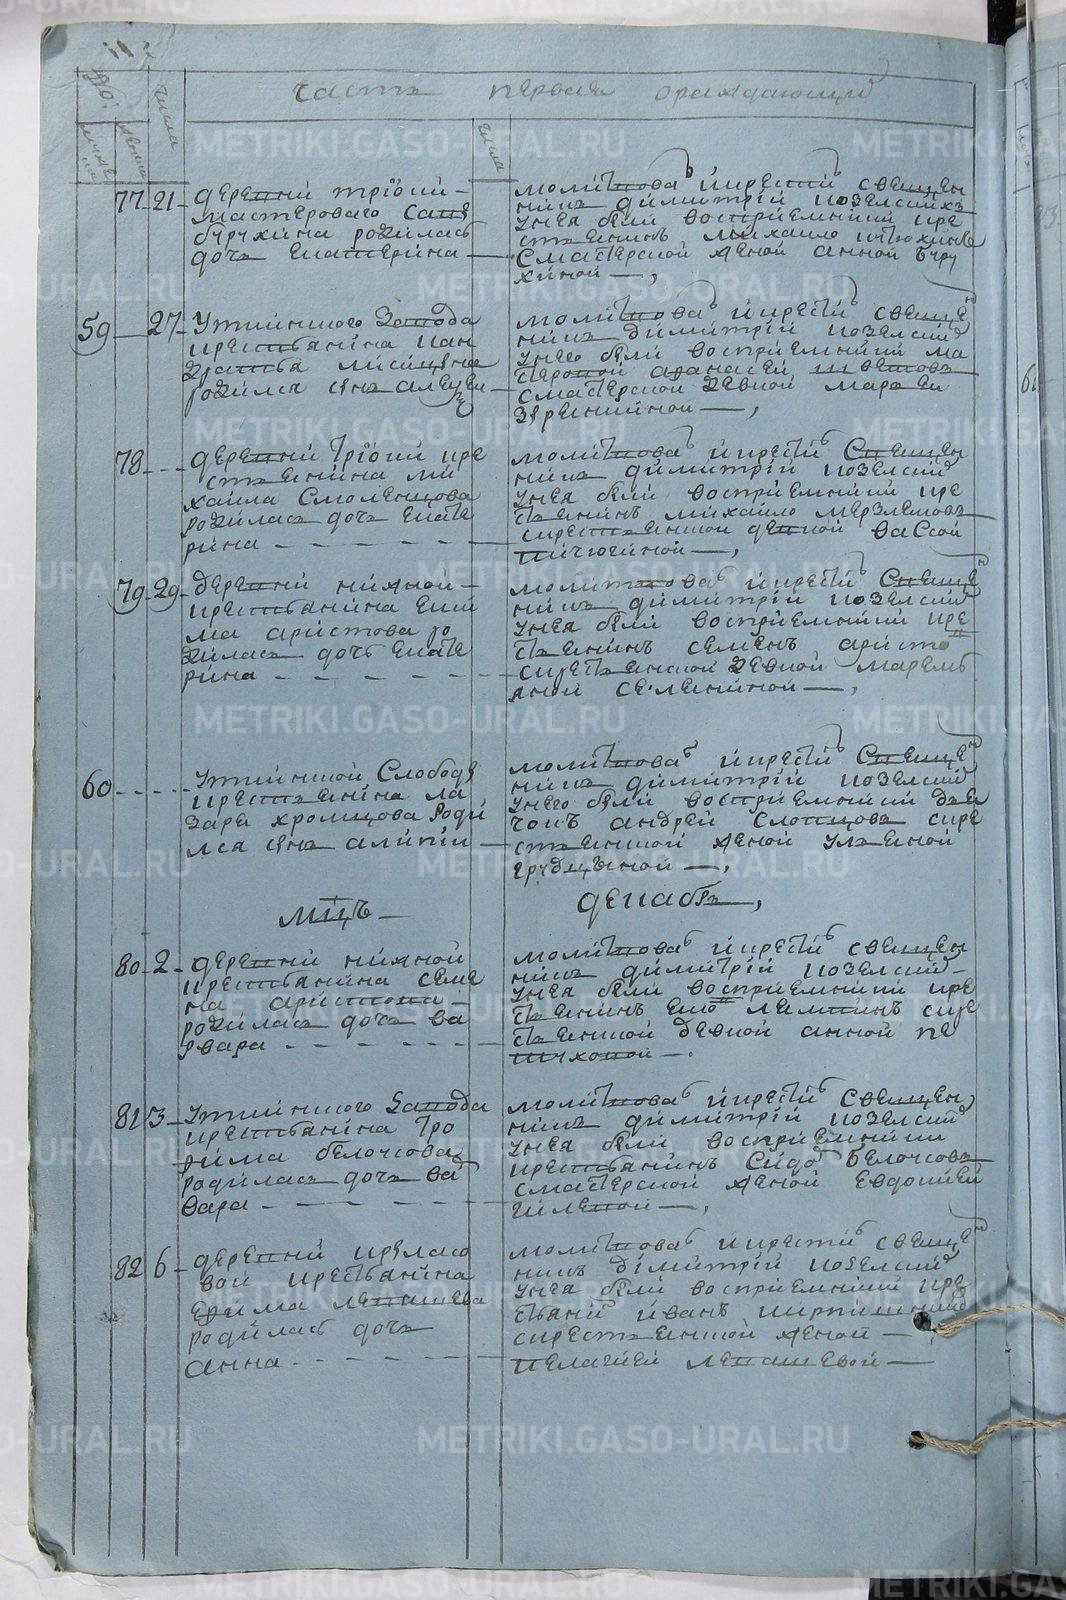 часть первая ораждающий
числа
числа
77 21 деревни трiöки
мастероваго Савы
бурухина родилась
дочь Екатерина
молитвовалъ и крестилъ священ
никъ Димитрiй козелский
у нея были восприемники кре
стьянинъ михайло
смастерской женой анной буру
хиной
59 27 уткинскаго завода
крестьянина пан
родился сынъ алексей
молитвовалъ и крестилъ свяще
никъ Димитрiй козелский
у него были восприемники ма
стеровой афанасей шветовъ
смастерской девкой марьей
78 деревни трiöки кре
стьянина ми
хаила Смоленцова
родилась дочь Екате
рина
молитвовалъ и крестилъ Священ
никъ димитрiй козелский
у нея были восприемники кре
стьянинъ михайло мерзлековъ
скрестьянской девкой вассой
пичюгиной
79 29 деревни нижной
крестьянина Еки
ма аристова ро
дилась дочь Екате
рина
молитвовалъ и крестилъ Свяще
никъ димитрiй козелский
у нея были восприемники кре
стьянинъ семенъ аристо
скрестьянской девкой маремь
яной селекиной
60 уткинской Слободы
крестьянина ла
заря хромцова роди
лся сынъ алипiй
молитвовалъ и крестилъ Свяще
никъ димитрiй козелский
у него были восприемники дья
чокъ андрей Слопцовъ скре
стьянской женой ульеной
грудцыной
Мцъ декабрь
80 2 деревни нижной
крестьянина семе
на аристова
родилась дочь ва
рвара
молитвовалъ и крестилъ священ
никъ димитрiй козелский
у нея были восприемники кре
стьянинъ скре
стьянской девкой анной пе
туховой
81 3 уткинскаго завода
крестьянина тро
фима белоусова
родилась дочь ва
вара
молитвовалъ и крестилъ Священ
никъ димитрiй козелский
у нея были восприемники
крестьянинъ Сидоръ белоусовъ
смастерской женой Евдокией
гилевой
82 6 деревни крыласо
вой крестьянина
Ефима левашева
родилась дочь
анна
молитвовалъ и крестилъ свяще
никъ димитрiй козелский
у нея были восприемники кре
стьяни иванъ
скрестьянской женой
пелагией левашевой
METRIKI.GASO-URAL.RU